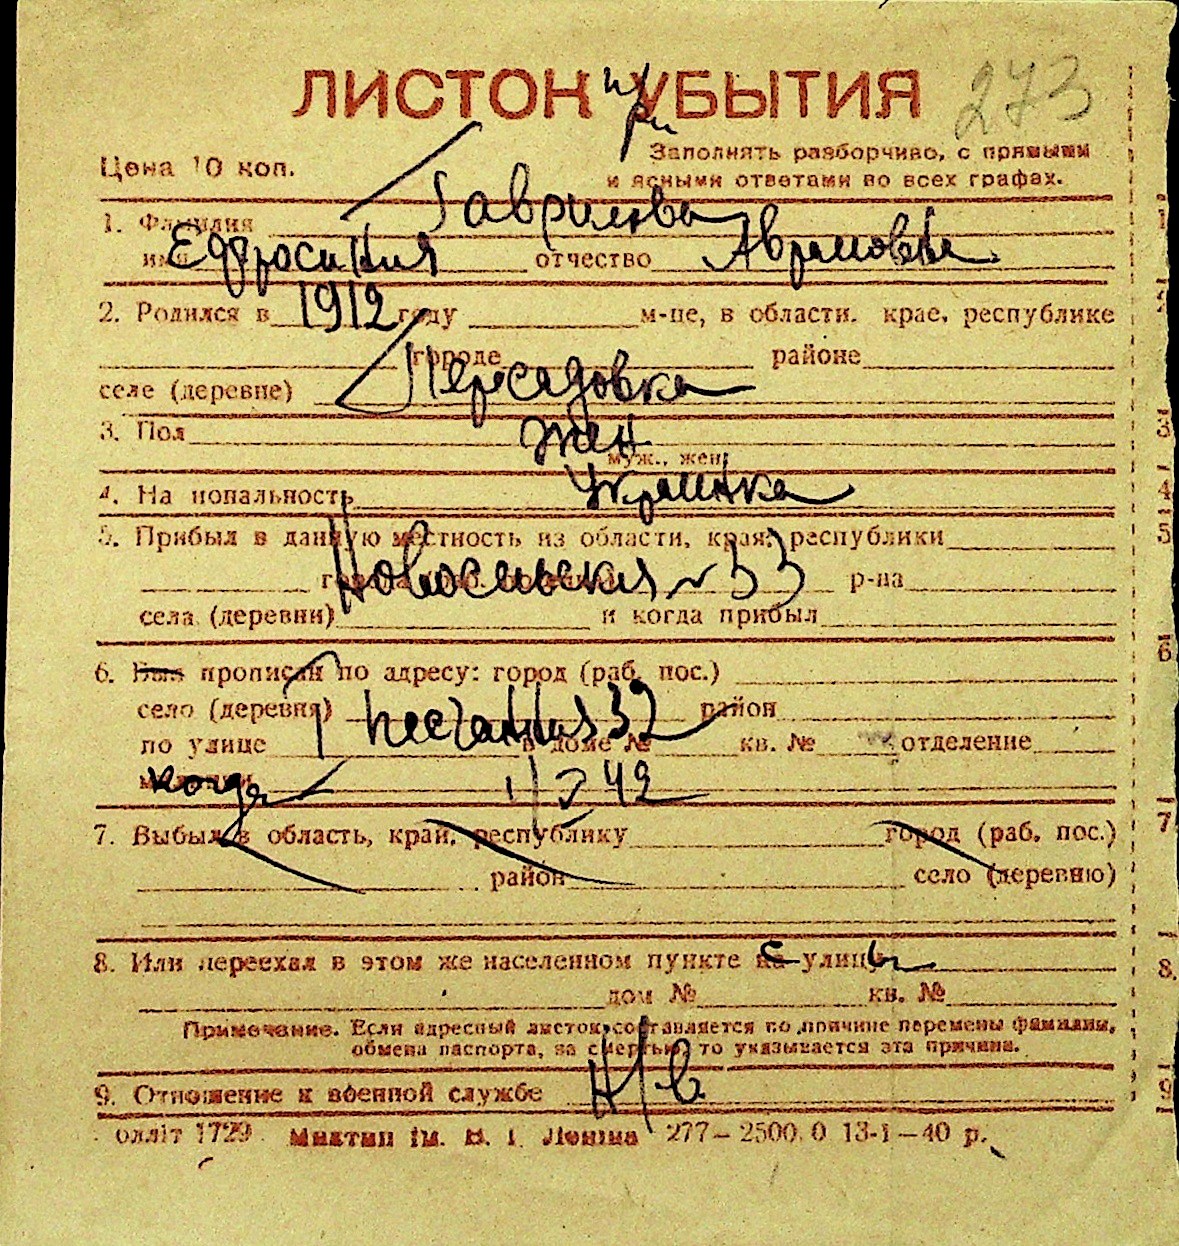 ЛИСТОК УБЫТИЯ 273
при
Цена 10 коп.
Заполнять разборчиво, с прямыми
и ясными ответами во всех графах.
1. Фамилия Гаврилова
имя Ефросиния отчество Аврамовна
2. Родился в 1912 году м-це, в области, крае, республике
городе районе
селе (деревне) Пересадовка
3. Пол жен
муж., жен.
4. Национальность Украинка
5. Прибыл в данную местность из области, края, республики
города (раб. поселка) Новосельская № 33 р-на
села (деревни) и когда прибыл
6. Был прописан по адресу: город (раб. пос.)
село (деревня) Песчанная 32 район
по улице в доме № кв. № отделение
когда 42
7. Выбыл в область, край, республику город (раб. пос.)
район село (деревню)
8. Или переехал в этом же населенном пункте с улицы
дом № кв. №
Примечание. Если адресный листок составляется по причине перемены фамилии,
обмена паспорта, за смертью, то указывается эта причина.
9. Отношение к военной службе Н/в
олліт 1729 Миктип ім. В. І. Леніна 277—2500.0 13-1—40 р.
1
2
3
4
5
6
7
8.
9